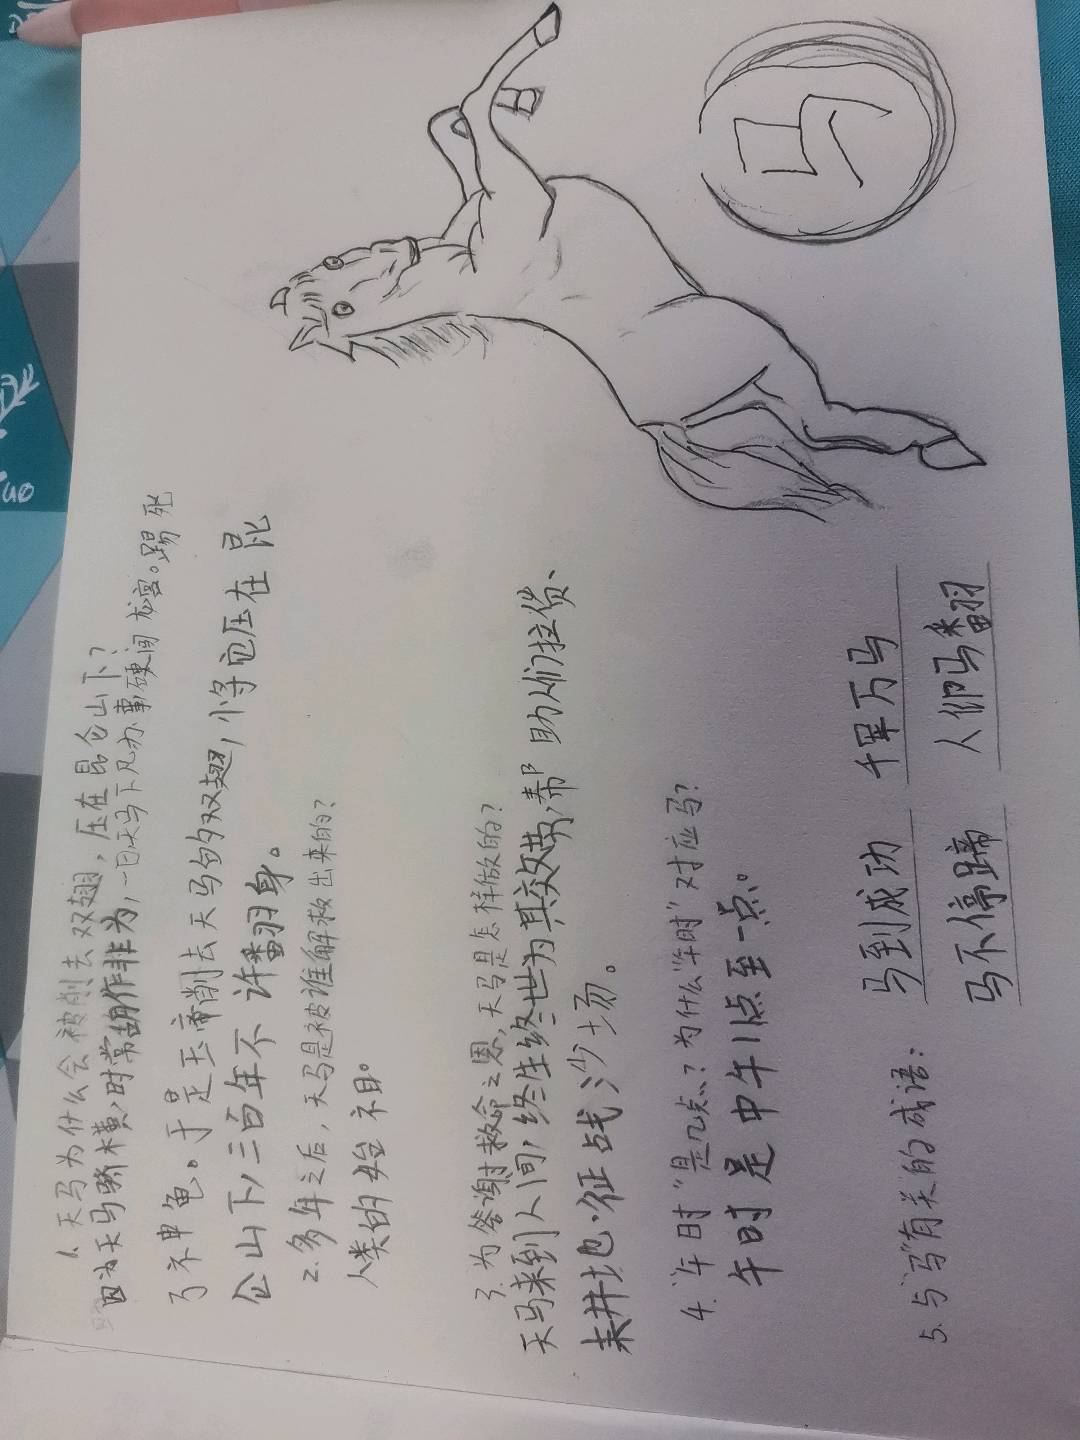 1. 天马为什么会被削去双翅，压在昆仑山下？
因为天马骄横，时常胡作非为，一日天马下凡办事硬闯龙宫。踢死
了神龟。于是玉帝削去天马的双翅，将它压在昆
仑山下，三百年不许翻身。
2. 多年之后，天马是被谁解救出来的？
人类的始祖。
3. 为答谢救命之恩，天马是怎样做的？
天马来到人间，终生终世为其效劳，帮助人们拉货、
耒井地·征战沙场。
4. “午时”是几点？为什么“午时”对应马？
午时是中午11点至一点。
5. 与“马”有关的成语：
马到成功 千军万马
马不停蹄 人们马翻
马